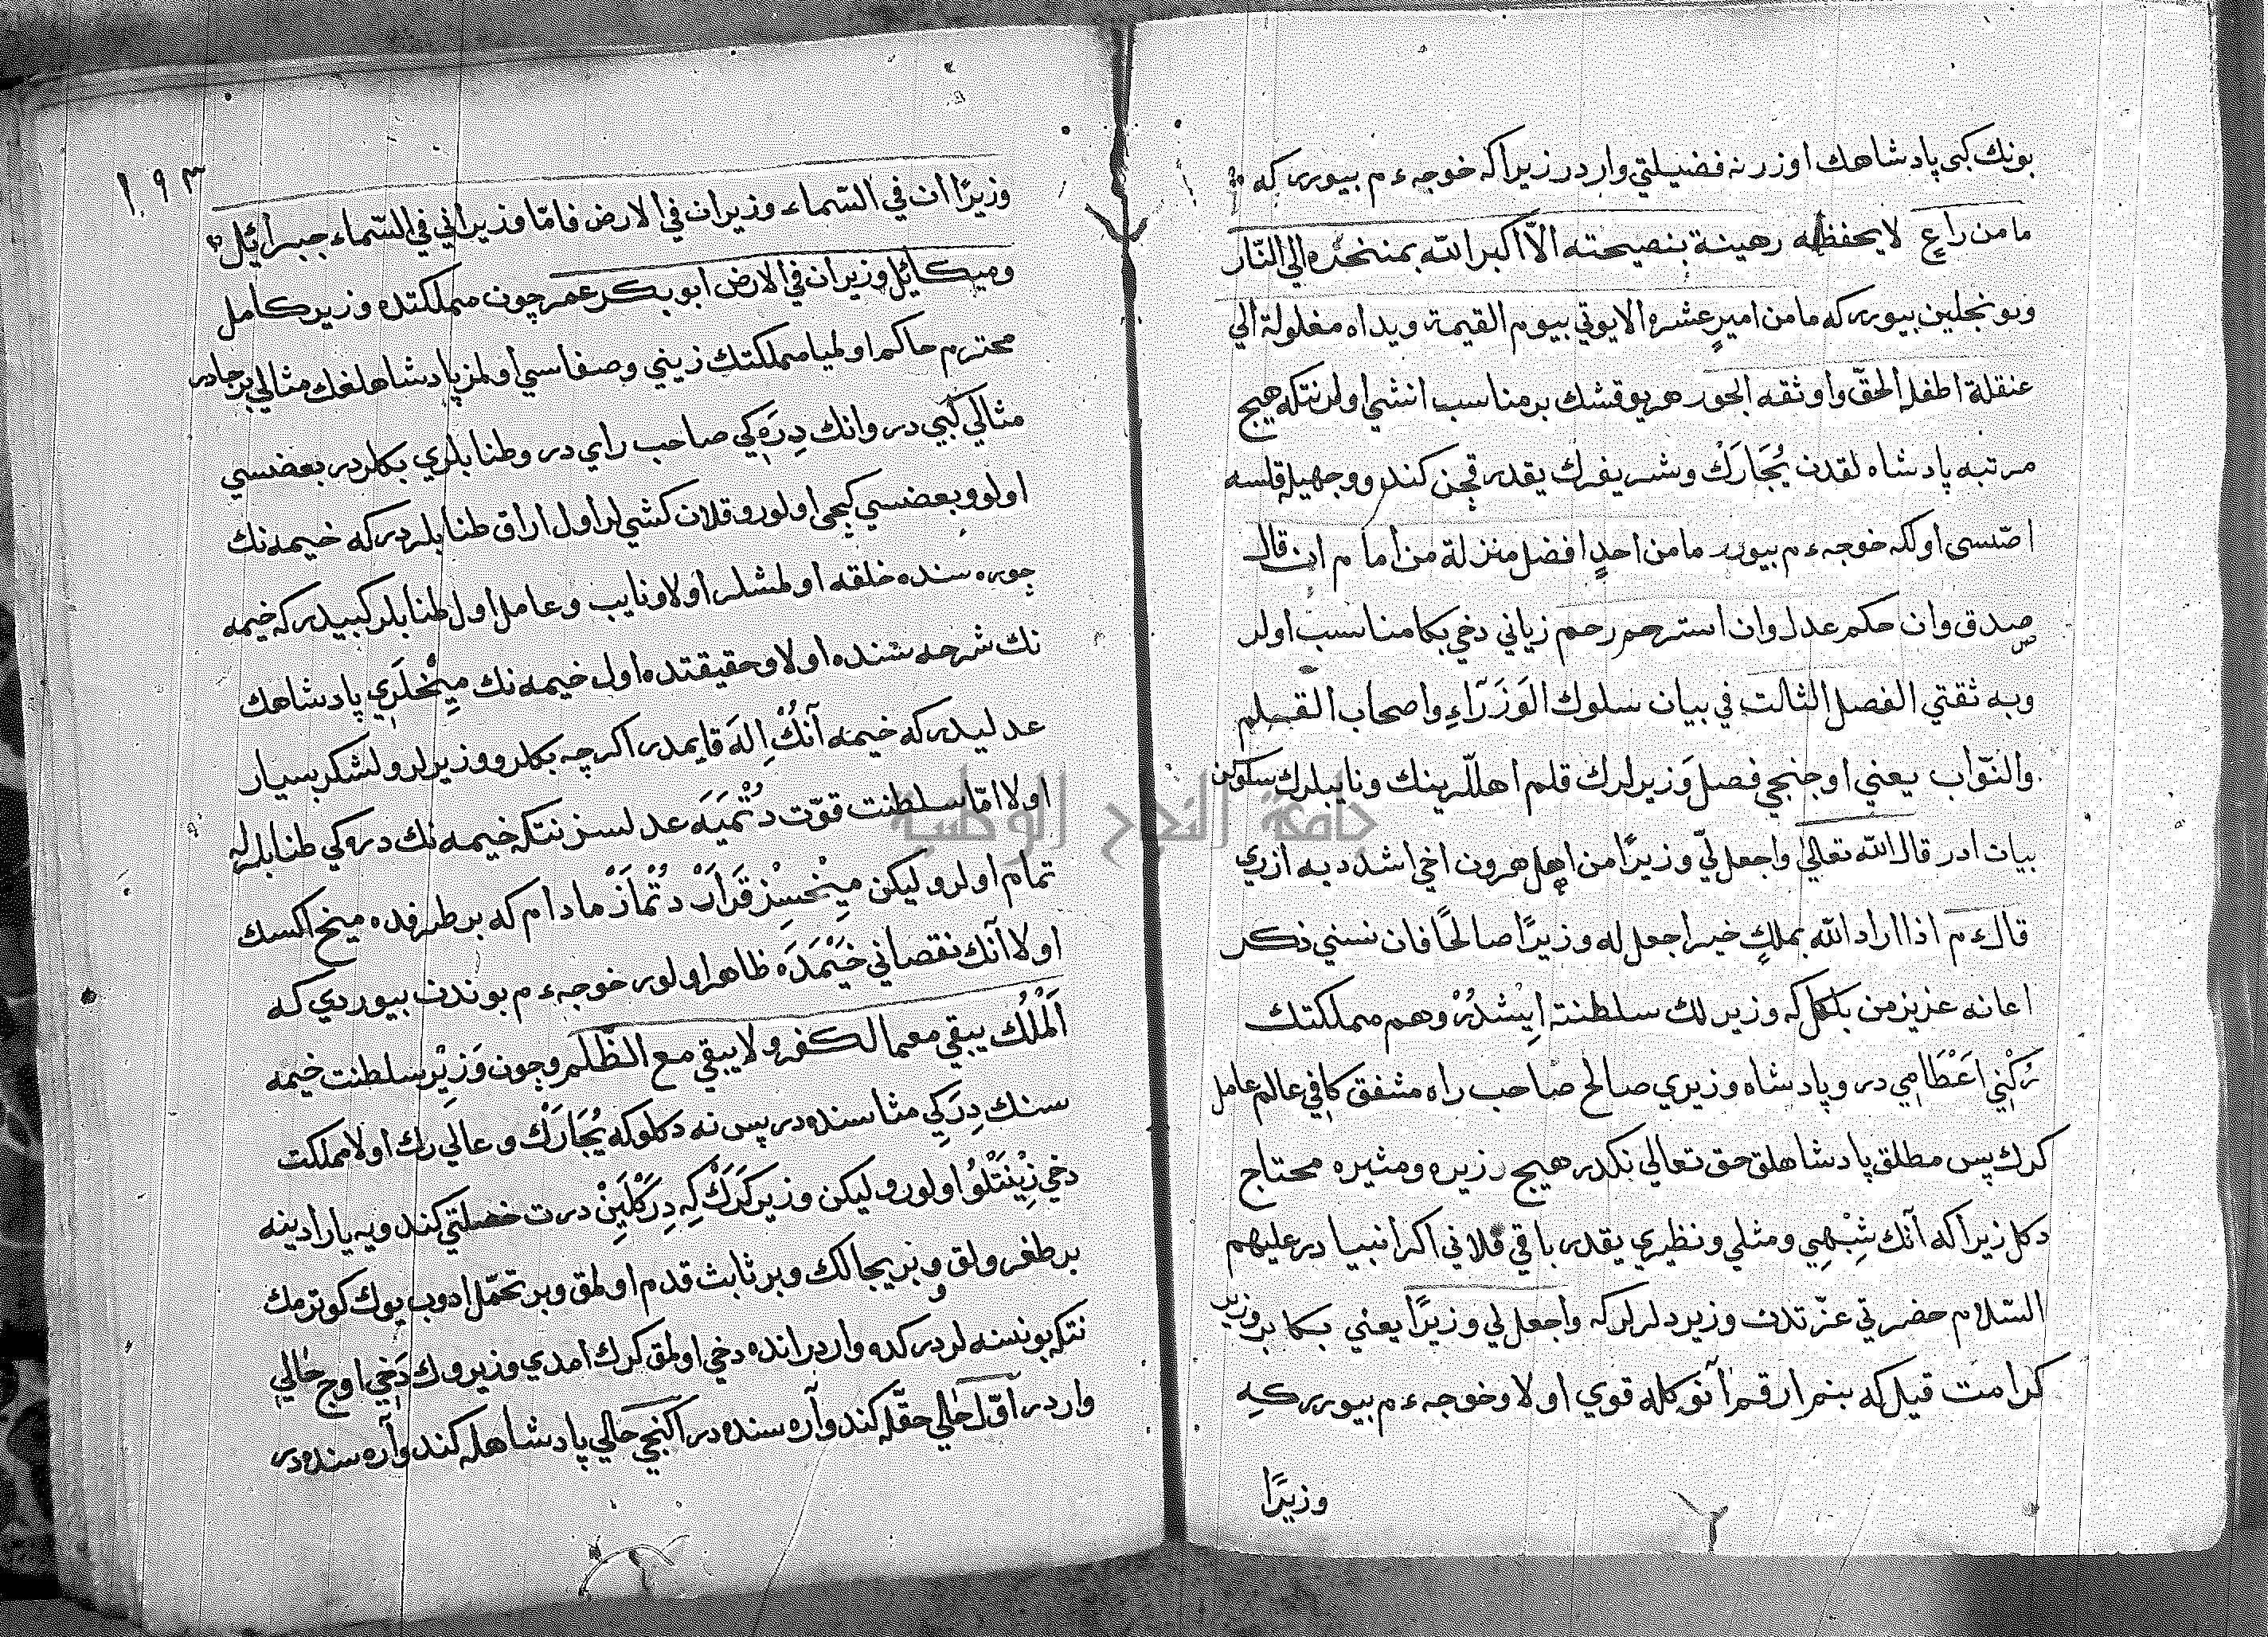 بونك كبى پادشاهك اوزرنه فضيلتي واردر زيرا كه خوجه ءم بيورر كه
ما من راعٍ لا يحفظه رهينة بنصيحته الاّ اكبر الله بمنخره الي النّار
وبونجلين بيورر كه ما من اميرٍ عشره الا يوتي بيوم القيمة ويداه مغلولة الي
عنقلة اطفل الحقّ واوثقه الجور هر يوقشك بر مناسب انشي اولر نتكه هيج
مرتبه پادشاه لقدن يُجَارَكْ وشريفرك يقدر قچن كندو وجهيله قلسه
اصّسى اولكه خوجه ءم بيورر ما من احدٍ افضل منزلة من امام ان قال
صدق وان حكم عدل وان استرحم رحم زياني دخي بكا مناسب اولر
وبه ثقتي الفصل الثالث في بيان سلوك الوَزَرَآءِ واصحاب القلم
والنّوّاب يعني اوجنجي فصل وَزيرلرك قلم اهللرينك ونايبلرك سلوكن
بيان ادر قال الله تعالي واجعل لّي وزيرًا من اهلي هرون اخي اشدد به ازري
قال ءم اذا اراد الله بملكٍ خيرا جعل له وزيرًا صالحًا فان نسني ذكر
اعانه عزيز من بلكل كه وزيرلك سلطنته اِيْشدُرْ وهم مملكتك
رُكْنِي اَعْظَامِي در و پادشاه وزيري صالح صاحب راه مشفق كافي عالم عامل
كرك پس مطلق پادشاهلق حق تعالي نكدر هيج وزيره ومشيره محتاج
دكل زيرا كه آنك شِبْهِي ومثلي ونظيري يقدر باقي قلاني اكر انبيا در عليهم
السّلام حضرتي عزّتدن وزير دلرلر كه واجعل لي وزيرًا يعني بكا بر وزير
كرامت قيل كه بنم ارقم آنوكله قوي اولا وخوجه ءم بيورر كه
وزيرًا
١٩٣
وزيرًا ان في السّماء وزيران في الارض فامّا وزيراني في السّماء جبرائيل
وميكائيل وزيران في الارض ابو بكر عمر چون مملكتده وزير كامل
محترم حاكم اولميا مملكتك زيني وصفاسي اولمز پادشاهلغك مثالي بر جادر
مثالي كَبِي در وانك دِرَه كي صاحب راي در وطنابلري بكلردر بعضسي
اولو وبعضسي كچى اولور وقلان كشي لر اول اراق طنابلردر كه خيمه نك
چوره سنده خلقه اولمشلر اولا ونايب وعامل اول طنابلر كبيدر كه خيمه
نك شرحه سنده اولا وحقيقتده اول خيمه نك مِيْخلَرِي پادشاهك
عدليدر كه خيمه آنُكْ اِلَه قايمدر اكرچه بكلر ووزيرلر ولشكر بسيار
اولا امّا سلطنت قوّت دُتْمَيَه عدلسز نتكه خيمه نك دره كي طنابلرله
تمام اولر وليكن مِيْخسِزْ قَرَارْ دُتْمَازْ مادام كه بر طرفده ميخ اكسك
اولا آنك نقصاني خَيْمَدَه ظاهر اولور خوجه ءم بوندن بيوردي كه
اَلْمُلك يبقي مع الكفر ولا يبقي مع الظّلم وچون وَزِيْر سلطنت خيمه
سنك دِرَكِي مثاسنده در پس نه دكلو كه يُجَارَكْ وعالي رك اولا مملكت
دخي زِيْنَتْلُو اولور وليكن وزير كَرَكْ كِه دِرَكْلَيِنْ درت خصلتي كندويه يار ادينه
بر طغرولق وبر يجالك وبر ثابت قدم اولمق وبر تحمّل ادوب يوك كوترمك
نتكه بو نسنه لر دركده واردر انده دخي اولمق كرك امدي وزيروك دَخِي اوچ حالي
واردر اوّل حالي حقّله كندو آره سنده در اكنجي حالي پادشاهله كندو آره سنده در